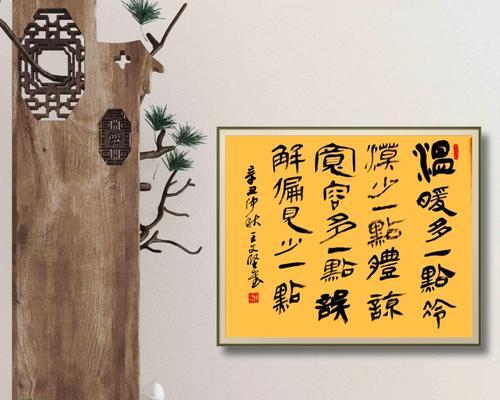 溫暖多一點冷
漠少一點體諒
寬容多一點誤
解偏見少一點
辛丑仲秋王文堅書